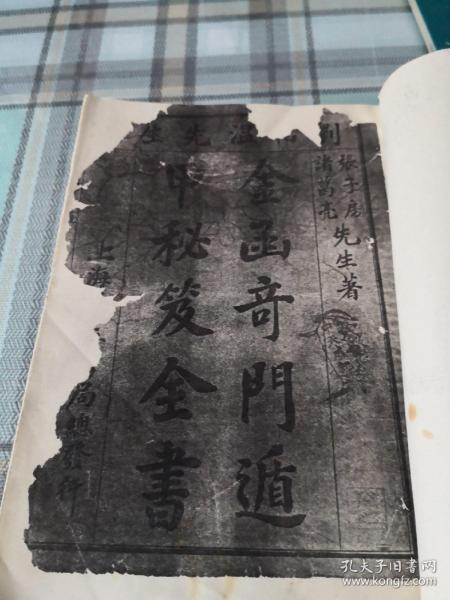 劉 温先
張子房
諸葛亮
先生著
金函奇門遁
甲秘笈全書
上海 局總發行
孔夫子旧书网
www.kongfz.com